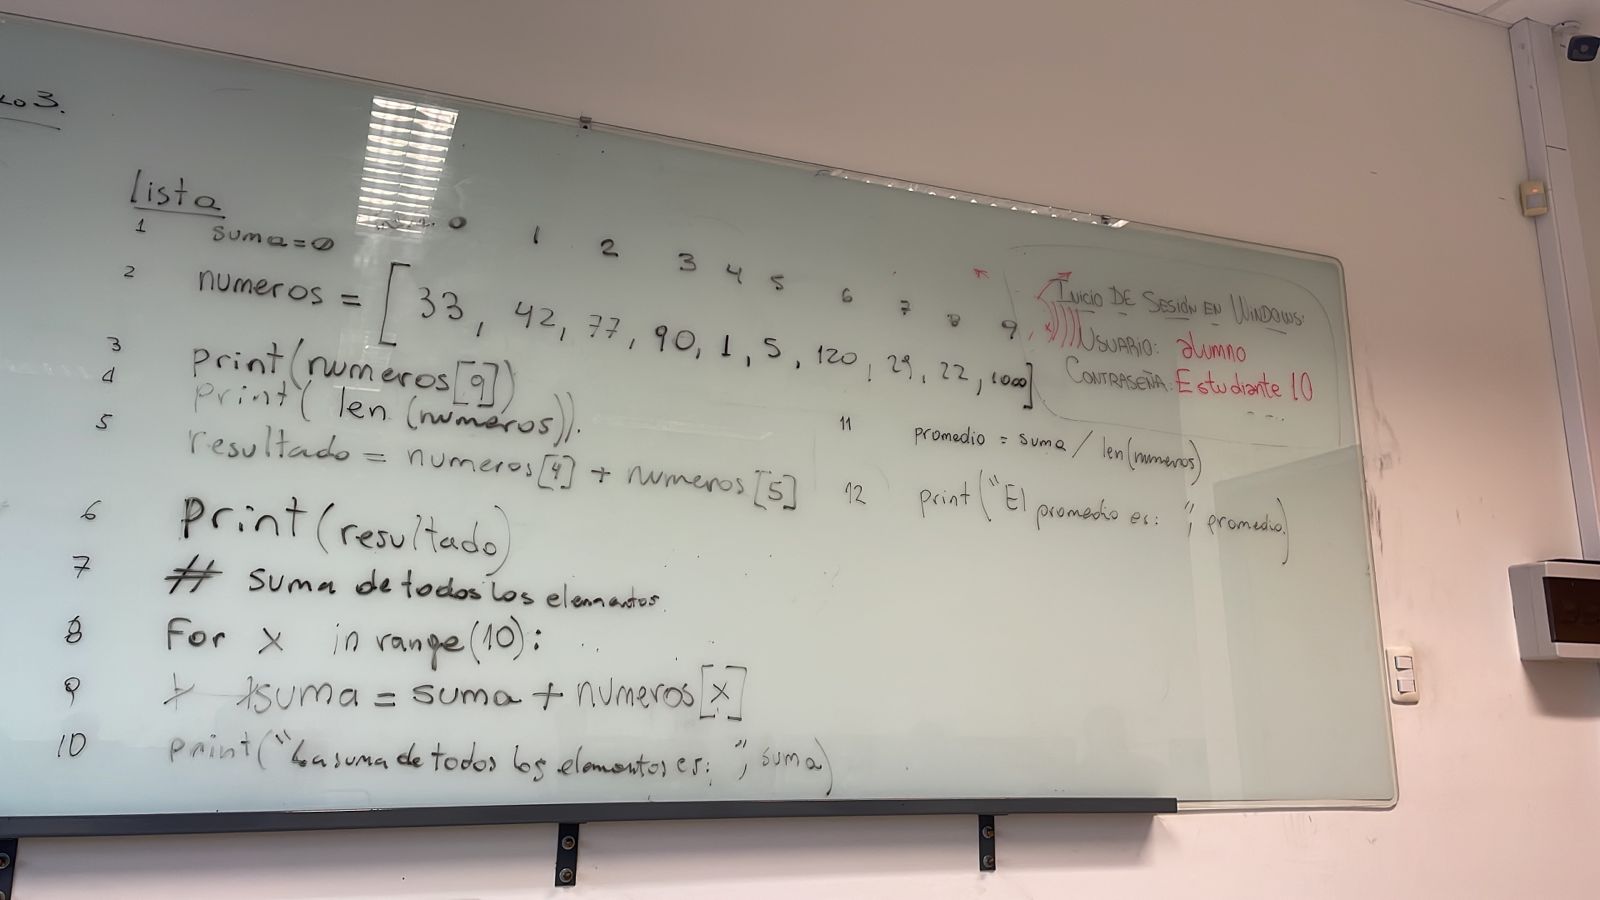 lista
1 suma=0
0 1 2 3 4 5 6 7 8 9
2 numeros = [33, 42, 77, 90, 1, 5, 120, 29, 22, 1000]
3 print(numeros[9])
4 print( len (numeros)).
5 resultado = numeros[4] + numeros[5]
6 print(resultado)
7 # suma de todos los elementos.
8 For x in range(10):
9 suma = suma + numeros[x]
10 print("La suma de todos los elementos es: ", suma)
11 promedio = suma / len(numeros)
12 print("El promedio es: ", promedio)
INICIO DE SESIÓN EN WINDOWS:
USUARIO: alumno
CONTRASEÑA: Estudiante 10